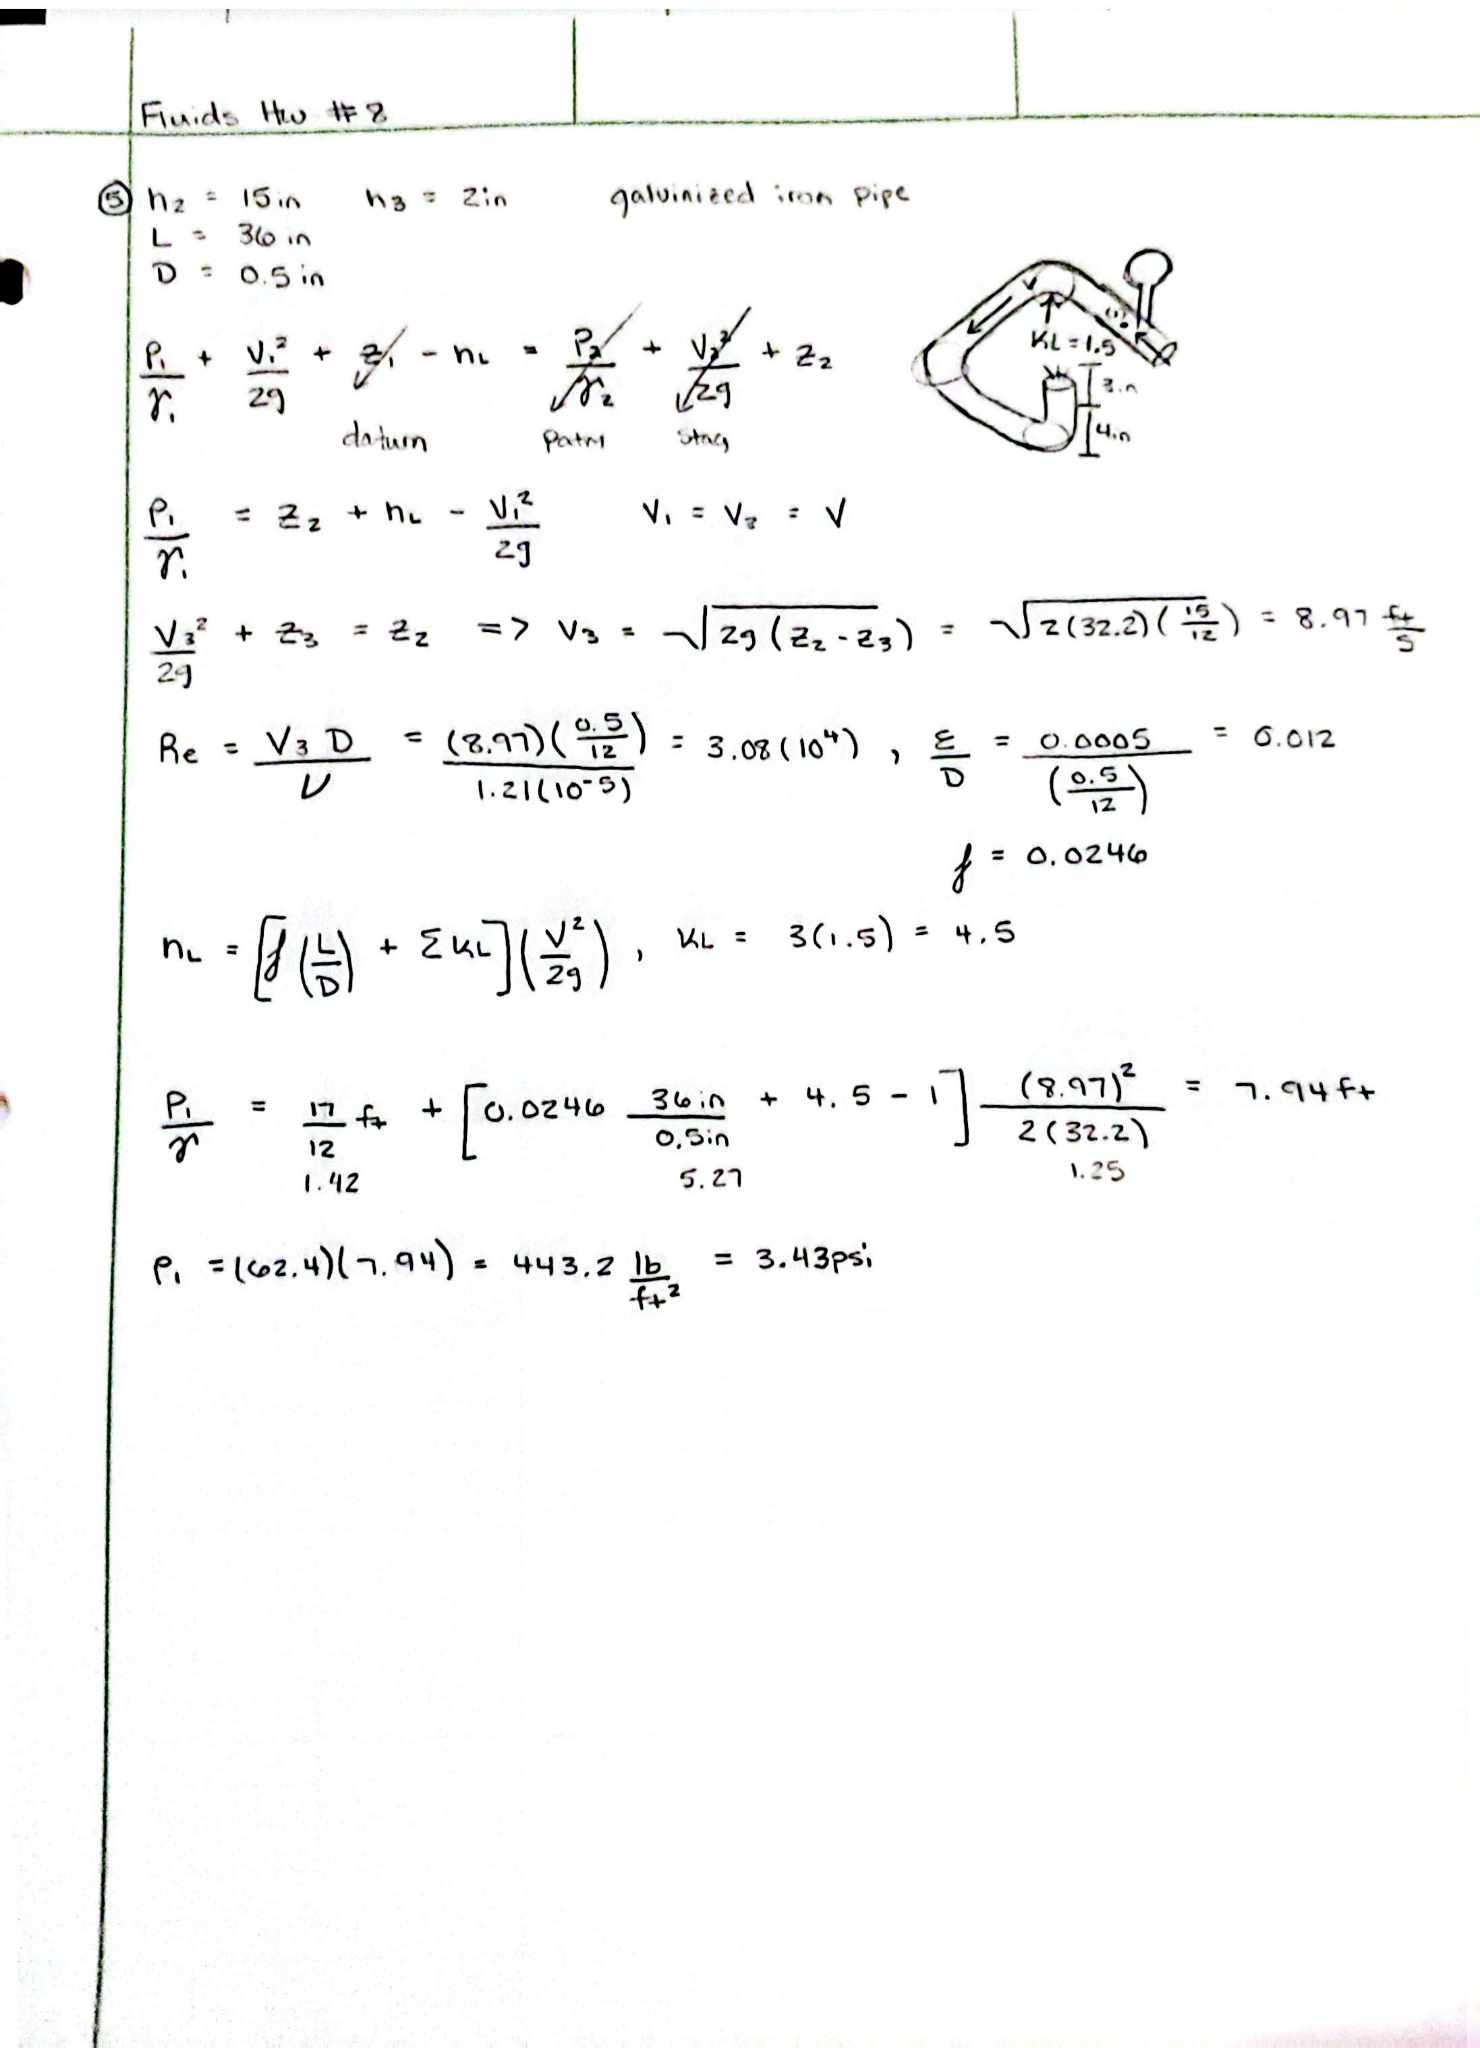 Fluids Hw #8
⑤ h₂ = 15in h₃ = 2in galvinized iron pipe
L = 36 in
D = 0.5 in
P₁/γ₁ + V₁²/2g + z₁ - hL = P₂/γ₂ + V₂²/2g + z₂
datum Patm stag
KL = 1.5
(1)
3in
4in
P₁/γ₁ = z₂ + hL - V₁²/2g V₁ = V₃ = V
V₃²/2g + z₃ = z₂ => V₃ = √2g(z₂-z₃) = √2(32.2)(15/12) = 8.97 ft/s
Re = V₃D/ν = (8.97)(0.5/12)/1.21(10⁻⁵) = 3.08(10⁴), ε/D = 0.0005/(0.5/12) = 0.012
f = 0.0246
hL = [f(L/D) + ΣKL](V²/2g), KL = 3(1.5) = 4.5
P₁/γ = 17/12 ft + [0.0246 36in/0.5in + 4.5 - 1] (8.97)²/2(32.2) = 7.94 ft
1.42 5.27 1.25
P₁ = (62.4)(7.94) = 443.2 lb/ft² = 3.43psi